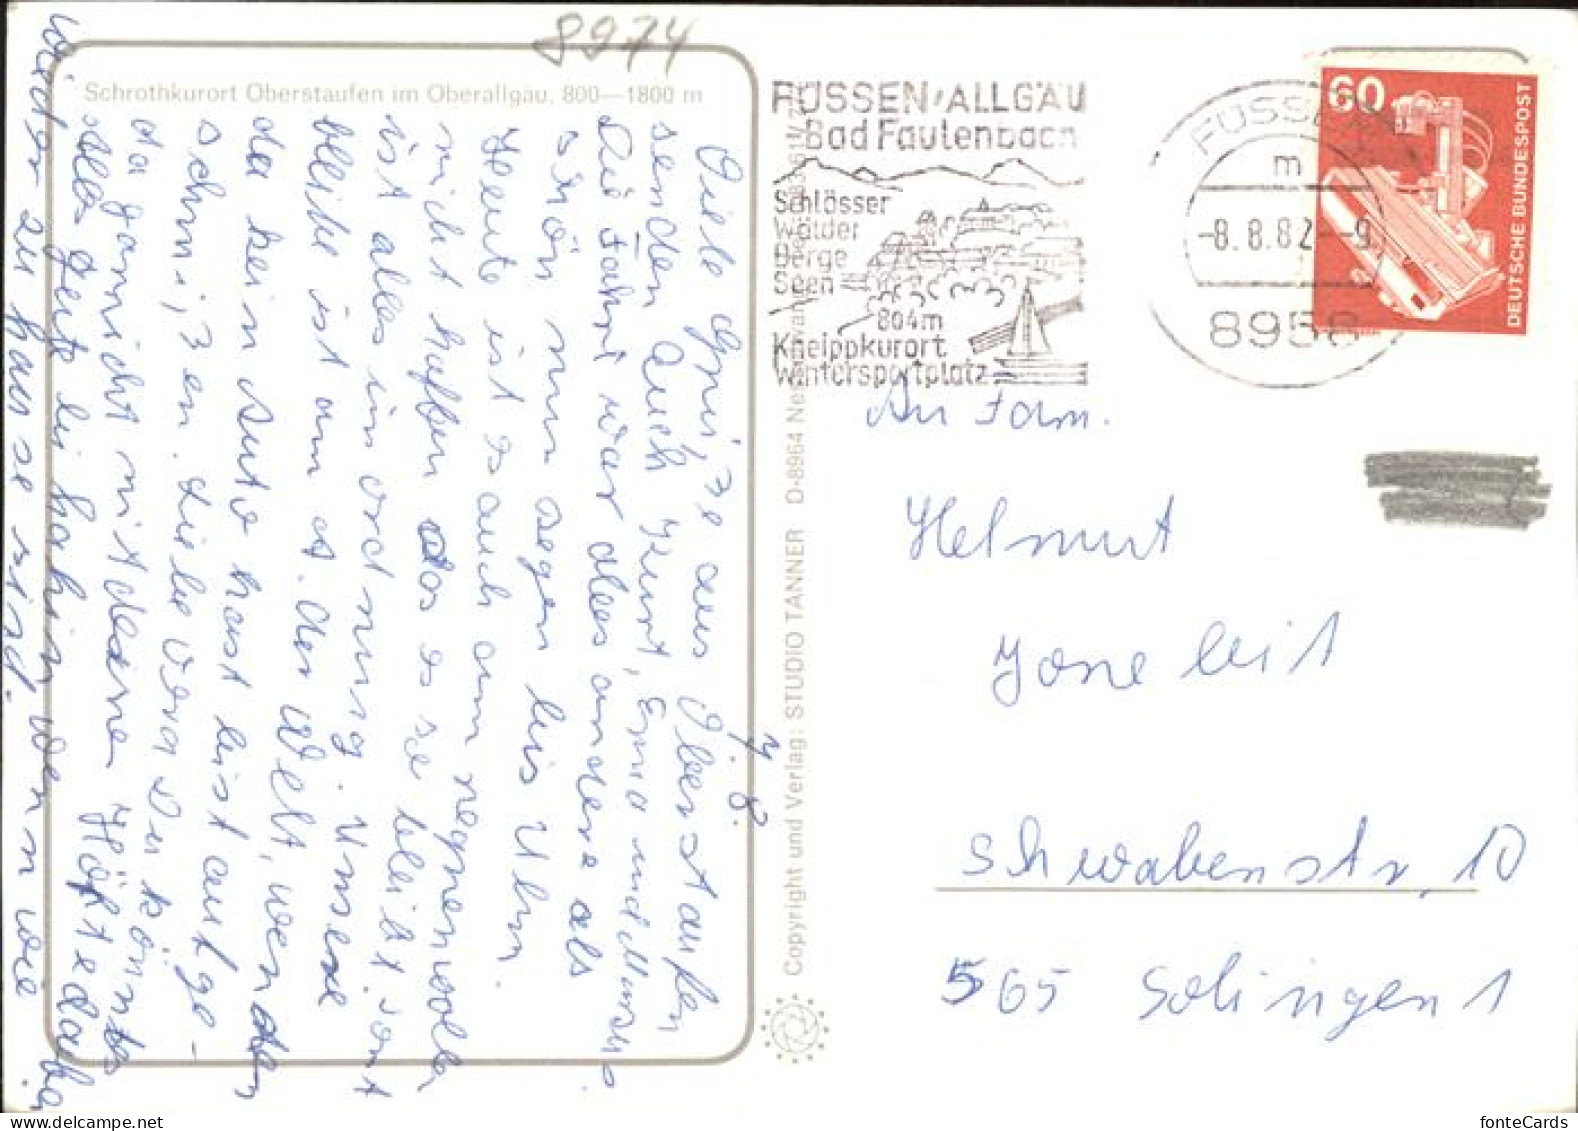 8974
Schrothkurort Oberstaufen im Oberallgäu, 800—1800 m
7. 8.
Viele Grüße aus Oberstaufen
senden Euch Kurt, Erna und
Die Fahrt war alles andere als
schön nur Regen bis Ulm.
Heute ist es auch am regnen wollen
nicht hoffen das es so bleibt. sonst
ist alles in ordnung. Unsere
bleibe ist am A. der Welt, wen du
da kein Auto hast bist aufge-
schmißen. Liebe Vera Du könntes
da garnicht mit deine Hüfte dabei
Alles gute bis dahin wenn wir
wieder zu hause sind.
Copyright und Verlag: STUDIO TANNER D-8964
FÜSSEN/ALLGÄU
Bad Faulenbach
Schlösser
Wälder
Berge
Seen
804m
Kneippkurort
Wintersportplatz
FÜSSEN
m
-8. 8. 82 -9
8958
60
DEUTSCHE BUNDESPOST
An Fam.
Helmut
Joneleit
Schwabenstr. 10
565 Solingen 1
fonteCards